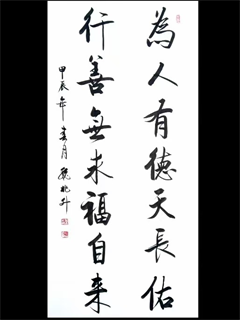 為人有德天長佑
行善無求福自来
甲辰年春月魏兆升